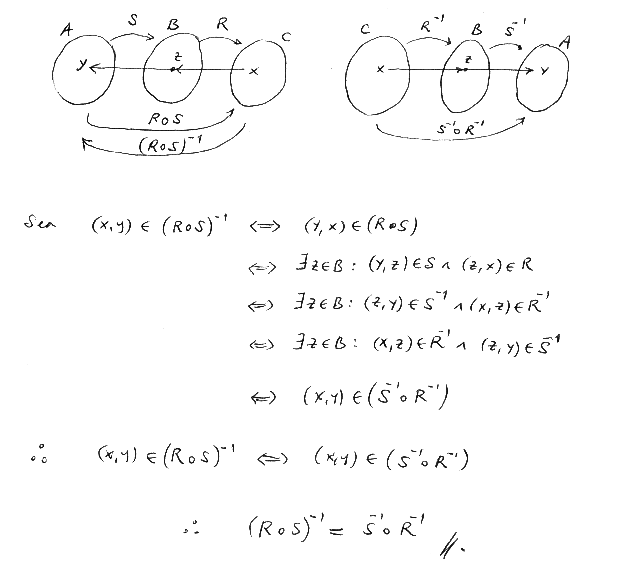 A S B R C
y z x
R∘S
(R∘S)⁻¹
C R⁻¹ B S⁻¹ A
x z y
S⁻¹∘R⁻¹
Sea (x,y) ∈ (R∘S)⁻¹ ⟺ (y,x) ∈ (R∘S)
⟺ ∃z∈B : (y,z)∈S ∧ (z,x)∈R
⟺ ∃z∈B : (z,y)∈S⁻¹ ∧ (x,z)∈R⁻¹
⟺ ∃z∈B : (x,z)∈R⁻¹ ∧ (z,y)∈S⁻¹
⟺ (x,y) ∈ (S⁻¹∘R⁻¹)
∴ (x,y) ∈ (R∘S)⁻¹ ⟺ (x,y) ∈ (S⁻¹∘R⁻¹)
∴ (R∘S)⁻¹ = S⁻¹∘R⁻¹ //.